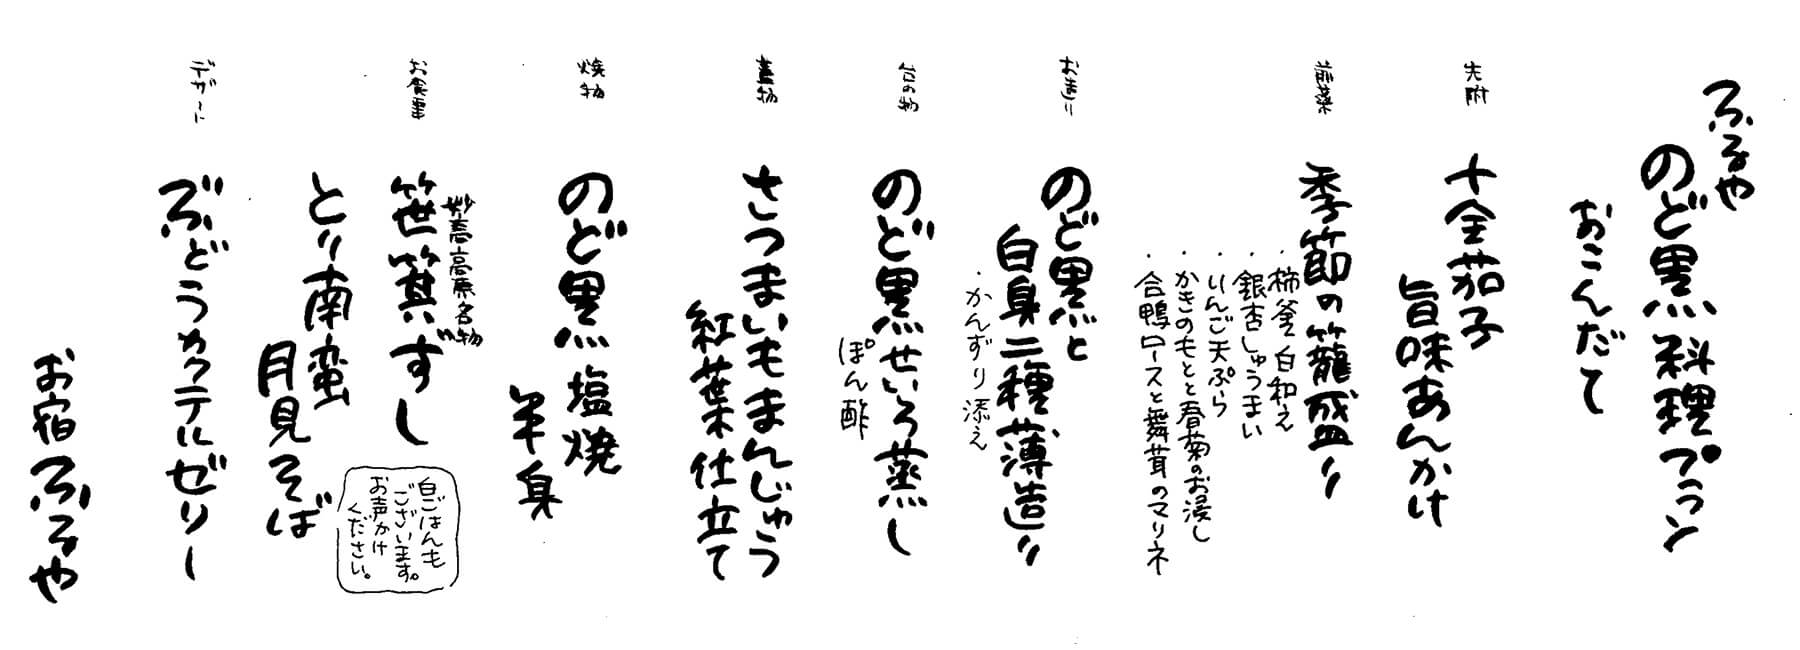 ふるや
のど黒料理プラン
おこんだて
先附
十全茄子
旨味あんかけ
前菜
季節の籠盛り
・柿釜 白和え
・銀杏しゅうまい
・りんご天ぷら
・かきのもとと春菊のお浸し
・合鴨ロースと舞茸のマリネ
お造り
のど黒と
白身二種薄造り
・かんずり添え
台の物
のど黒せいろ蒸し
ぽん酢
蓋物
さつまいもまんじゅう
紅葉仕立て
焼物
のど黒塩焼
半身
お食事
妙高高原名物
笹箕ずし
とり南蛮
月見そば
白ごはんも
ございます。
お声かけ
ください。
デザート
ぶどうカクテルゼリー
お宿ふるや